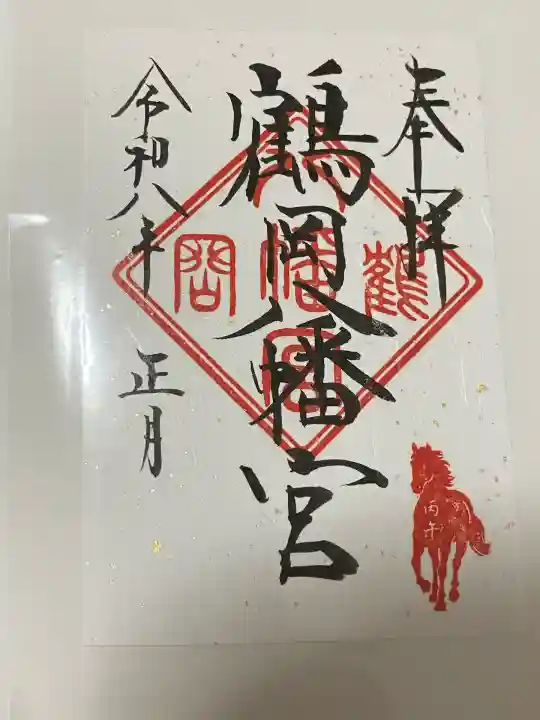 奉拝
鶴岡八幡宮
令和八年 正月
鶴
岡
丙午